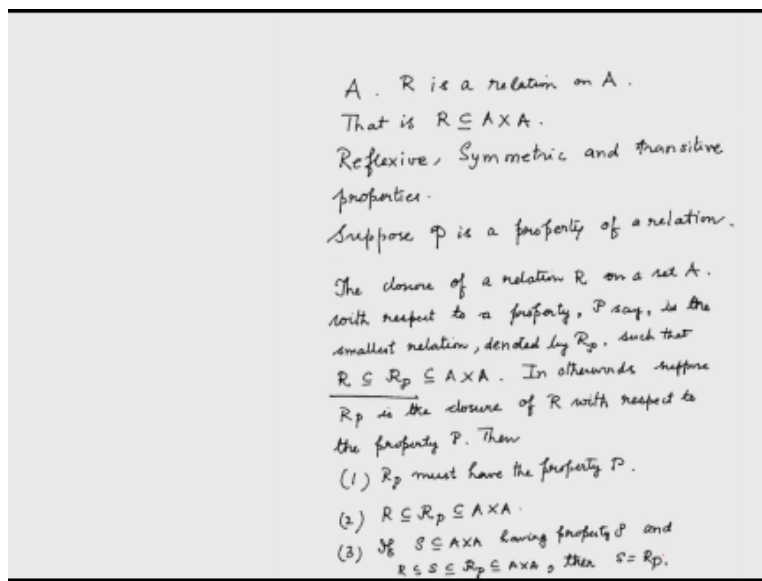 A . R is a relation on A .
That is R ⊆ A X A .
Reflexive, Symmetric and transitive
properties.
Suppose P is a property of a relation.
The closure of a relation R on a set A .
with respect to a property, P say, is the
smallest relation, denoted by Rp, such that
R ⊆ Rp ⊆ A X A . In otherwords suppose
Rp is the closure of R with respect to
the property P. Then
(1) Rp must have the property P.
(2) R ⊆ Rp ⊆ A X A .
(3) If S ⊆ A X A having property P and
R ⊆ S ⊆ Rp ⊆ A X A , then S = Rp.